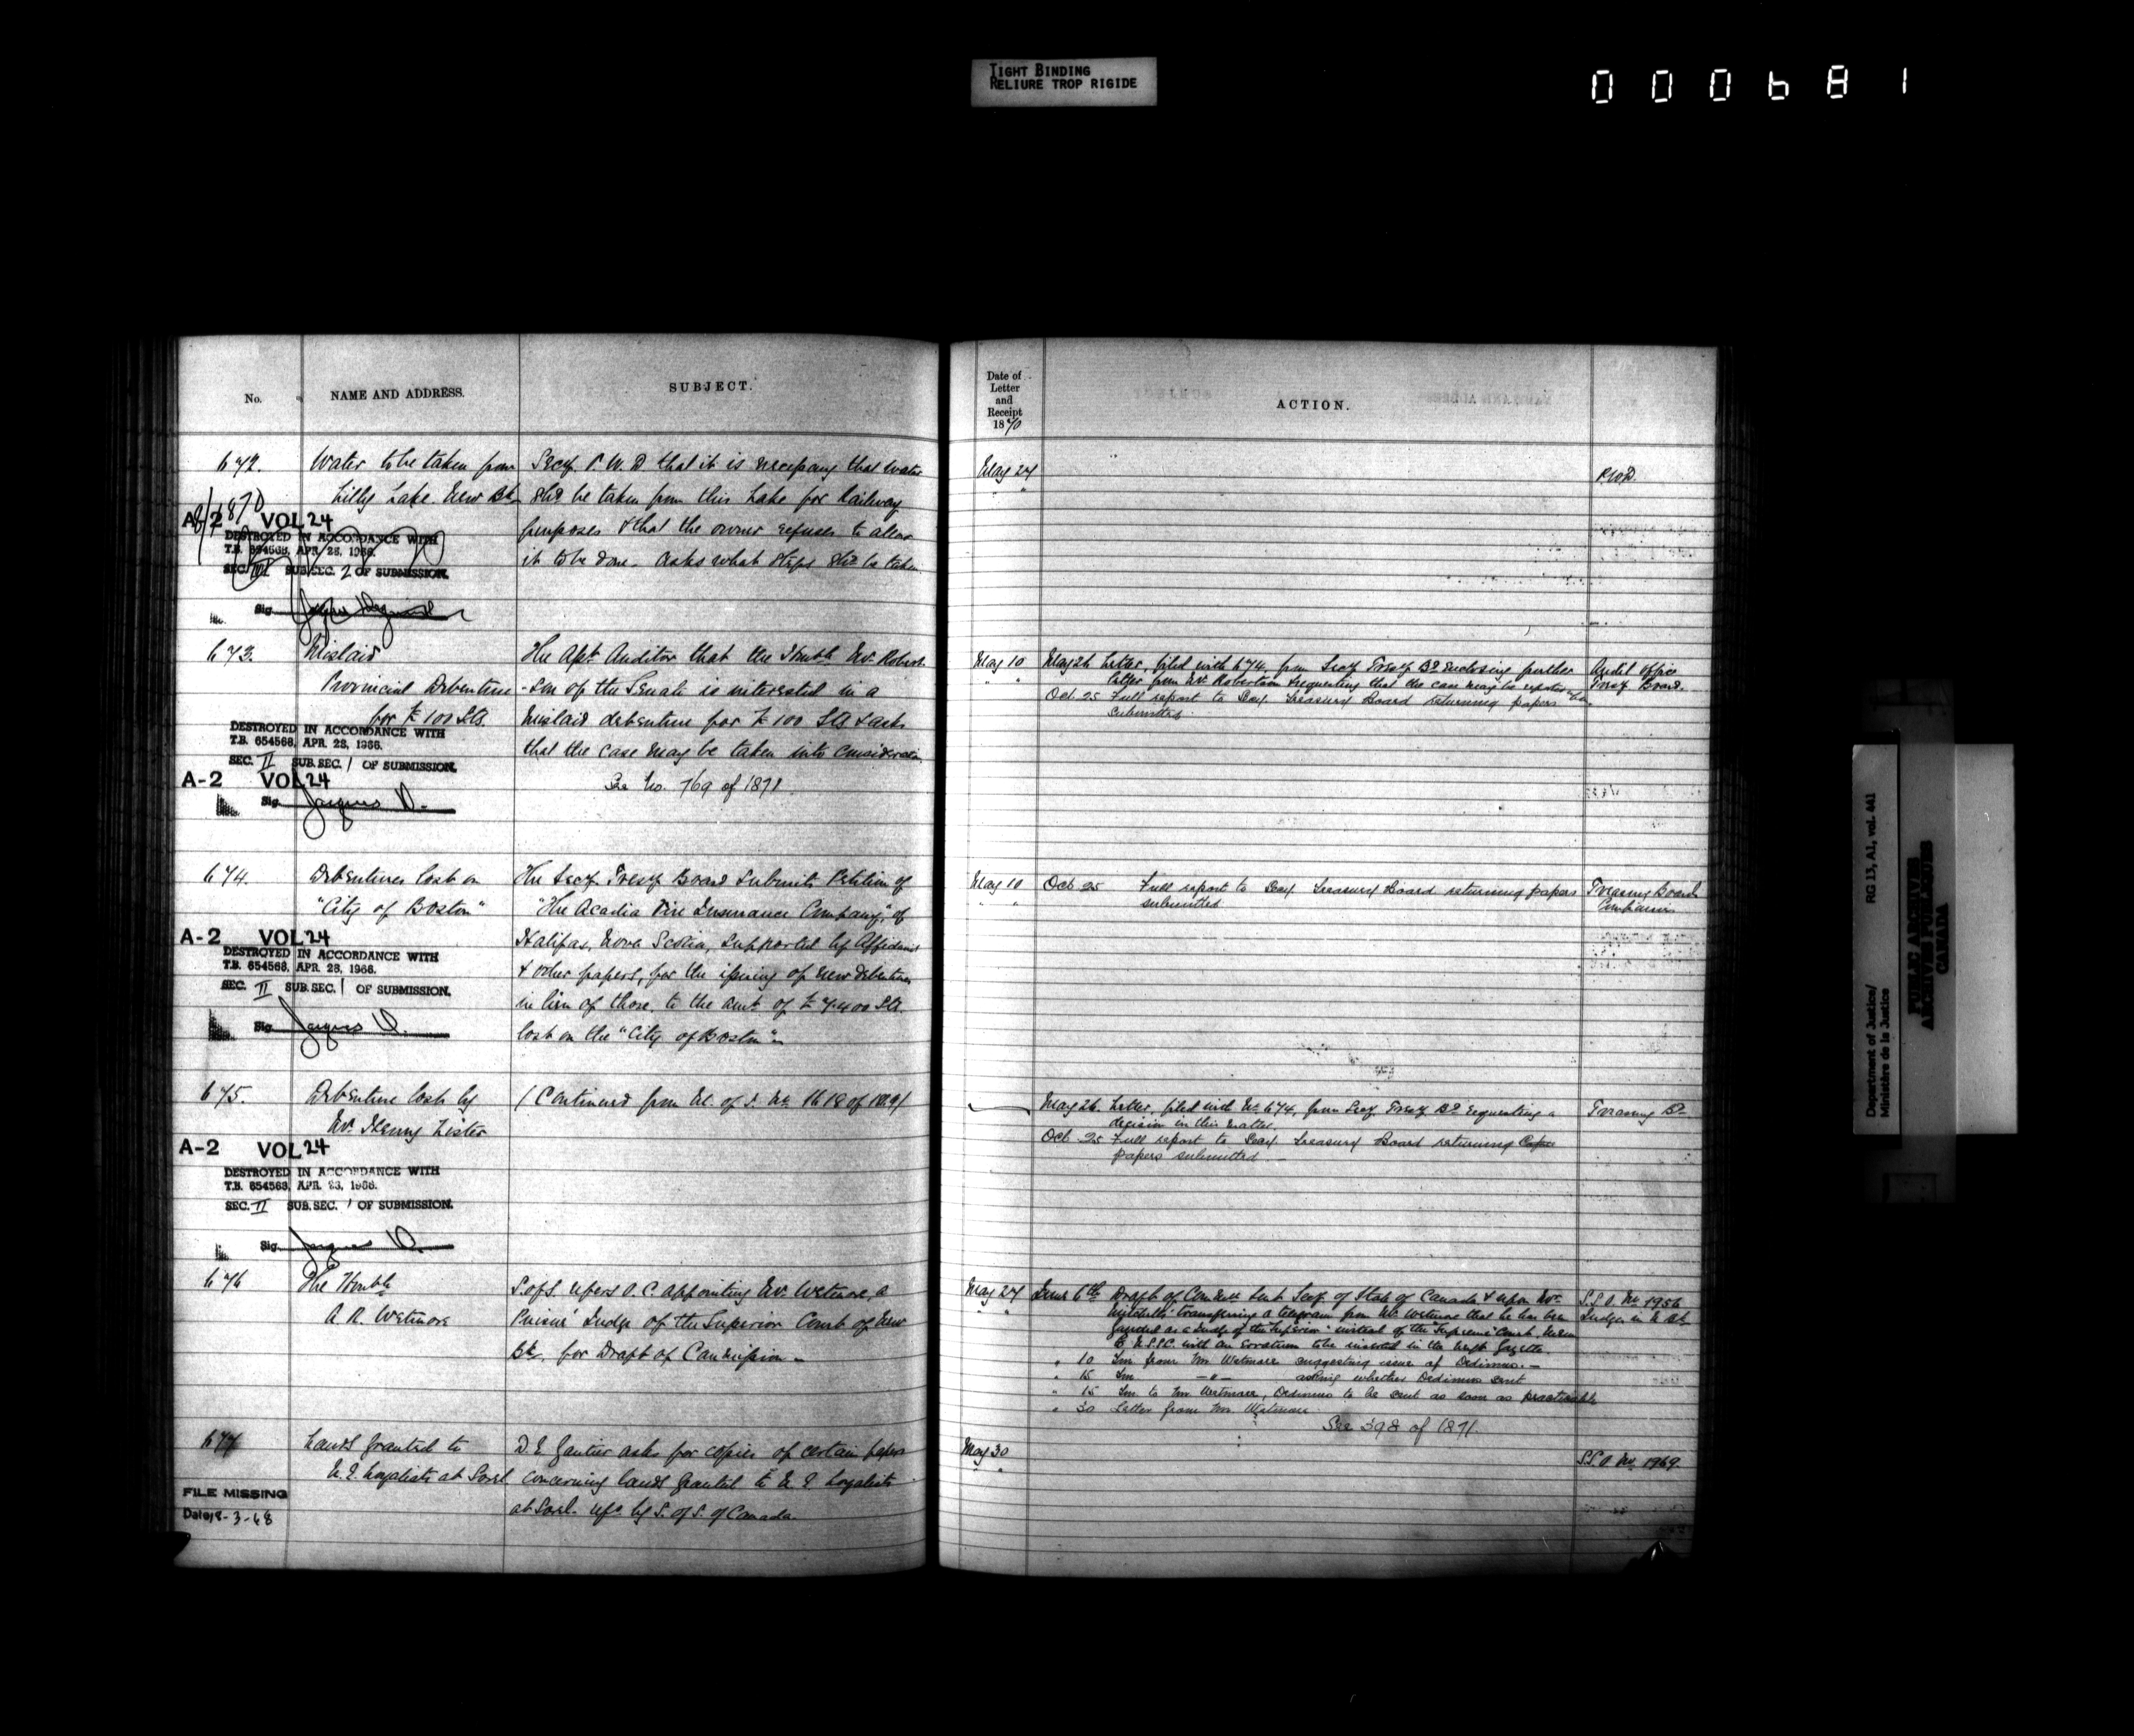 TIGHT BINDING
RELIURE TROP RIGIDE
000681
No.
NAME AND ADDRESS.
SUBJECT.
672.
Water to be taken from
Lilly Lake New Bk
Secy P.W.D that it is necessary that water
shd be taken from this Lake for Railway
purposes & that the owner refuses to allow
it to be done. Asks what steps shd be taken
1870
A-2 VOL 24
DESTROYED IN ACCORDANCE WITH
T.B. 654568, APR. 28, 1966.
SEC. III SUB.SEC. 2 OF SUBMISSION.
Sig.
673.
Mislaid
Provincial Debenture
for £100 Stg.
The Apt Auditor that the Honble Mr. Robert-
-son of the Senate is interested in a
mislaid debenture for £100 Stg & asks
that the case may be taken into consideration
See No. 769 of 1871
DESTROYED IN ACCORDANCE WITH
T.B. 654568, APR. 28, 1966.
SEC. II SUB.SEC. 1 OF SUBMISSION.
A-2 VOL 24
Sig. Jacques D.
674.
Debentures lost on
"City of Boston"
The Secy Tresy Board submits Petition of
"The Acadia Fire Insurance Company", of
Halifax, Nova Scotia, supported by Affidavit
& other papers, for the issuing of new debentures
in lieu of those to the amt of £7400 Stg.
lost on the "City of Boston"
A-2 VOL 24
DESTROYED IN ACCORDANCE WITH
T.B. 654568, APR. 28, 1966.
SEC. II SUB.SEC. 1 OF SUBMISSION.
Sig. Jacques D.
675.
Debenture lost by
Mr. Henry Lister
(Continued from M. of J. No 1618 of 1869)
A-2 VOL 24
DESTROYED IN ACCORDANCE WITH
T.B. 654568, APR. 28, 1966.
SEC. II SUB.SEC. 1 OF SUBMISSION.
Sig. Jacques D.
676
The Honble
A. R. Wetmore
S. of S. refers O.C. appointing Mr. Wetmore, a
Puisné Judge of the Superior Court of New
Bk. for Draft of Commission
677
Lands granted to
U.E. Loyalists at Sorel
D. E. Gautier asks for copies of certain papers
concerning lands granted to U.E. Loyalists
at Sorel. refd by S. of S. of Canada
FILE MISSING
Date 18-3-68
Date of
Letter
and
Receipt
1870
ACTION.
May 24
P.W.D.
May 10
May 26 Letter, filed with 674, from Secy Tresy Bd enclosing further
letter from Mr. Robertson requesting that the case may be reported on.
Oct. 25 Full report to Secy. Treasury Board returning papers
submitted.
Audit Office
Tresy Board.
May 10
Oct 25 Full report to Secy Treasury Board returning papers
submitted
Treasury Board
Companies
May 26. Letter, filed with No. 674, from Secy Tresy Bd requesting a
decision in this matter.
Oct 25 Full report to Secy. Treasury Board returning
papers submitted.
Treasury Bd
May 27
June 6th Draft of Commn sent Secy. of State of Canada & upon Mr.
Mitchell's transferring a telegram from Mr. Wetmore that he has been
gazetted as a Judge of the "Superior" instead of the "Supreme" Court,
with an erratum to be inserted in the next Gazette
" 10 Tm from Mr Wetmore suggesting issue of Dedimus.
" 15 Tm —"— asking whether Dedimus sent
" 15 Tm to Mr. Wetmore, Dedimus to be sent as soon as practicable
" 30 Letter from Mr Wetmore
See 398 of 1871.
S.S.O. No. 1956
Judges in N. Bk
May 30
S.S.O No. 1969
RG 13, A1, vol. 441
Department of Justice/
Ministère de la Justice
PUBLIC ARCHIVES
ARCHIVES PUBLIQUES
CANADA